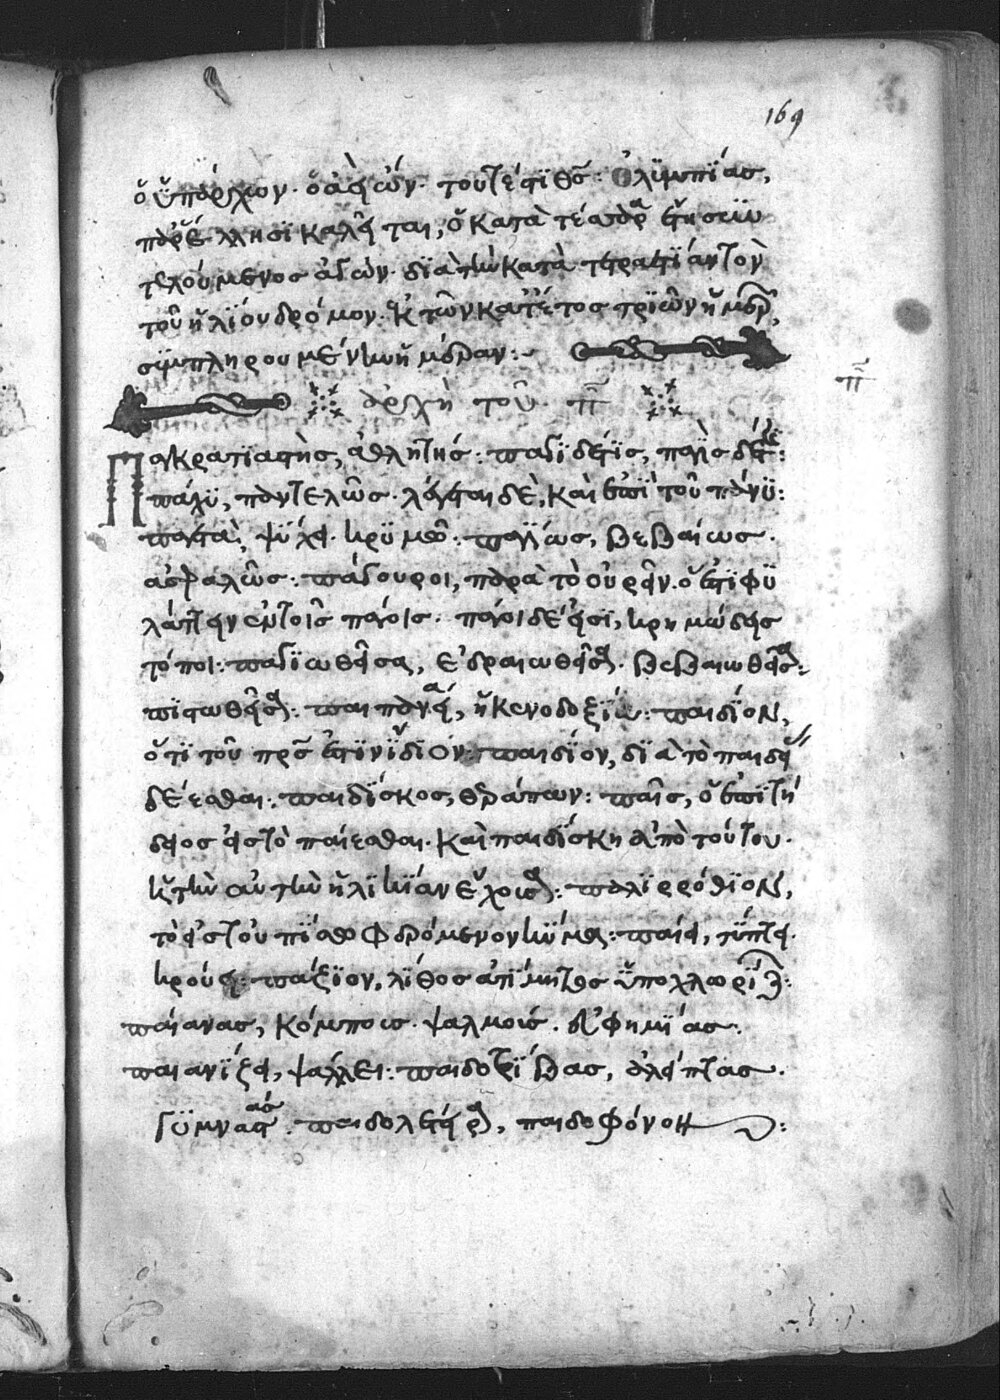 169
ὁ ὑπάρχων· ὁ ἀεὶ ὤν· τουτέστι θς: Ὀλυμπίας,
παρ' Ἕλλησι καλεῖται, ὁ κατὰ τέσσαρα ἔτη σϊν
τελούμενος ἀγών· διὰ τὴν κατὰ τετραετίαν τὸν
τοῦ ἡλίου δρόμον· ἐκ τῶν κατ' ἔτος τριῶν ἡμερ,
συμπληρουμένην ἡμέραν:
ἀρχὴ τοῦ π
π
Παγκρατιαστὴς, ἀθλητής: παγίδες, παγὶς δέ:
πάγχυ, παντελῶς· λέγεται δὲ, καὶ ἐπὶ τοῦ πάνυ:
ψύχει· κρυμοῦ: παγίως, βεβαίως·
ἀσφαλῶς: πάγουροι, παρὰ τὸ οὐρεῖν· ὅ ἐστι φυ
λάττειν ἐν τοῖς πάγοις· πάγοι δέ εἰσι, κρημνώδεις
τόποι: παγιωθεῖσα, ἑδραιωθεῖσα· βεβαιωθεῖσα:
πιστωθεῖσα: ἡ κενοδοξία: παιδίον,
ὅτι τοῦ πρς ἐστιν ἴδιον: παιδίον, διὰ τὸ παιδεύ
δέεσθαι: παιδίσκος, θεράπων: παῖς, ὁ ἐπιτή
δειος εἰς τὸ παίεσθαι· καὶ παιδίσκη ἀπὸ τούτου·
ἢ τὴν αὐτὴν ἡλικίαν ἔχουσα: παλιρρόθιον,
τὸ εἰς τοὐπίσω φερόμενον κῦμα: παίει, τύπτει·
κρούει: παξίον, λίθος
παιᾶνας, κόμπους· ψαλμούς· εὐφημίας·
παιανίζει, ψάλλει: παιδοτρίβας, ἀλείπτας·
γυμναστάς: παιδολέτειρα, παιδοφόνον: